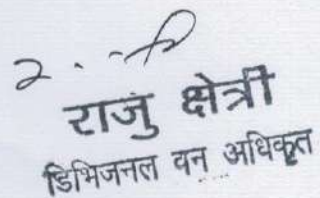 राजु क्षेत्री
डिभिजनल वन अधिकृत